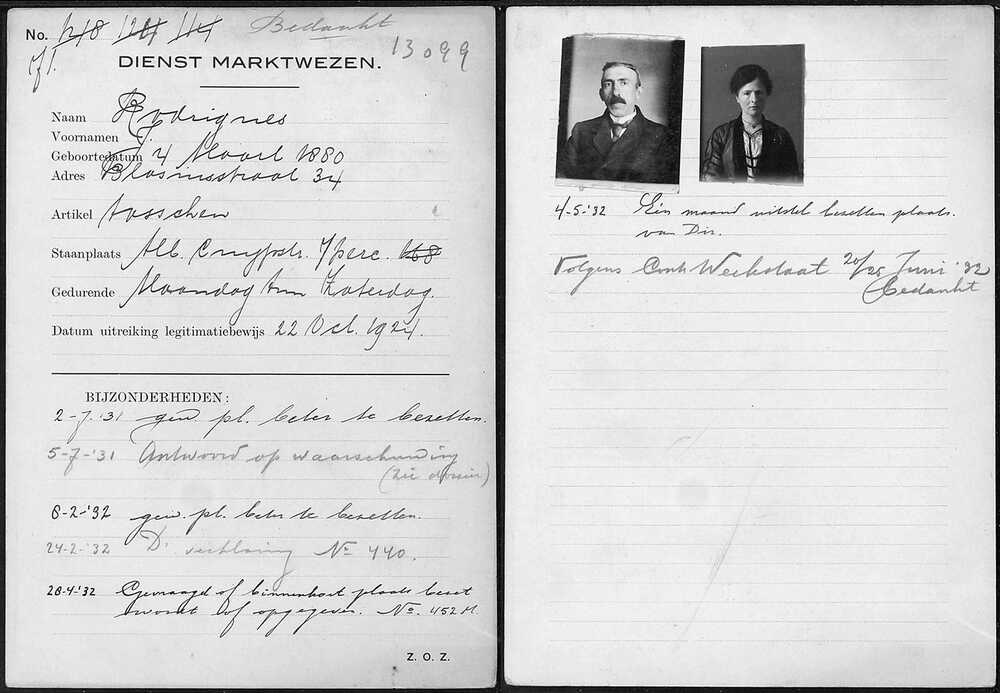 No. 248 124 114 Bedankt
71. 13099
DIENST MARKTWEZEN.
Naam Rodrigues
Voornamen J.
Geboortedatum 4 Maart 1880
Adres Blasiusstraat 34
Artikel tasschen
Staanplaats Alb. Cuypstr. 7 perc. 168
Gedurende Maandag t/m Zaterdag.
Datum uitreiking legitimatiebewijs 22 Oct. 1924.
BIJZONDERHEDEN:
2-7-'31 gew. pl. beter te bezetten.
5-7-'31 Antwoord op waarschuwing
(zie dossier)
8-2-'32 gew. pl. beter te bezetten.
24-2-'32 Dr verklaring No 440.
28-4-'32 Gevraagd of binnenkort plaats bezet
wordt of opgegeven. No. 452 M.
Z. O. Z.
4-5-'32 Één maand uitstel bezetten plaats.
van Dir.
Volgens Contr Weekstaat 20/25 Juni '32
Bedankt